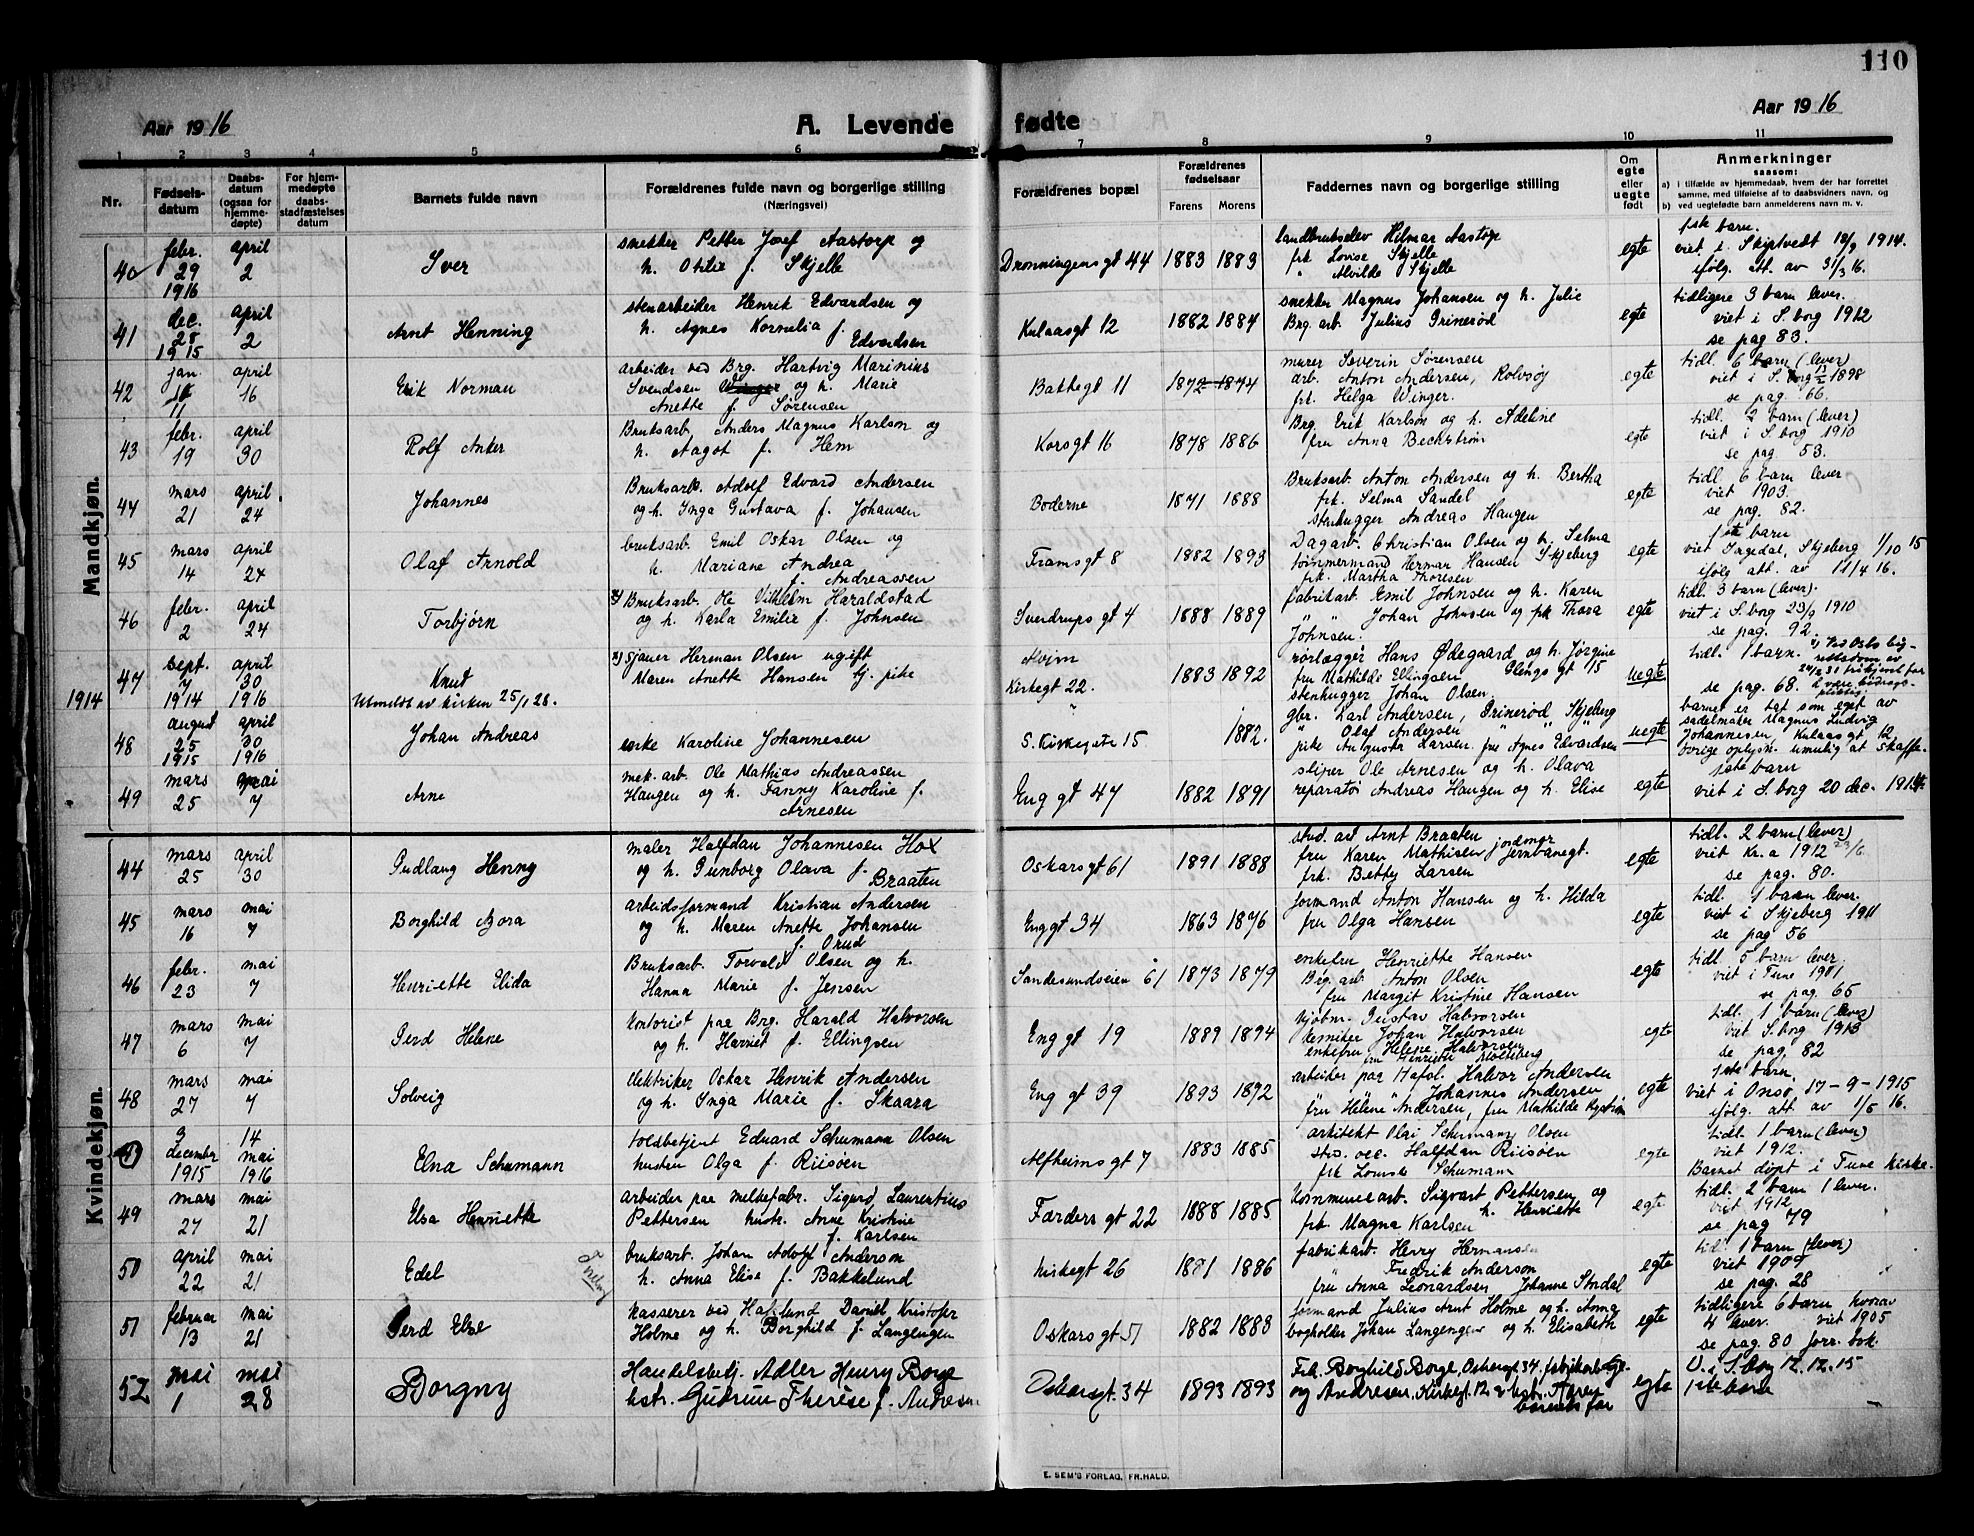 110
Aar 1916
A. Levende
fødte
Aar 1916
1 2 3 4 5 6 7 8 9 10 11
Nr.
Fødsels-
datum
Daabs-
datum
(ogsaa for
hjemme-
døpte)
For hjem-
medøpte
daabs-
stadfæstelses
datum
Barnets fulde navn
Forældrenes fulde navn og borgerlige stilling
(Næringsvei)
Forældrenes bopæl
Forældrenes
fødselsaar
Farens Morens
Faddernes navn og borgerlige stilling
Om
egte
eller
uegte
født
Anmerkninger
saasom:
a) i tilfælde av hjemmedaab, hvem der har forrettet
samme, med tilføielse af to daabsvidners navn, og
b) ved uegtefødte barn anmelderens navn m. v.
Mandkjøn.
40 febr. 29 1916 april 2
Iver
snekker Petter Josef Aastorp og
h. Othilie f. Skjelle
Dronningensgt 44 1883 1883
Landbrukselev Hilmar Aastorp
frk Lovise Skjelle
" Alvilde Skjelle
egte
1ste barn.
viet i Skiptvedt 10/9 1914.
ifølg. att. av 31/3 16.
41 dec. 28 1915 april 2
Arnt Henning
stenarbeider Henrik Edvardsen og
h. Agnes Kornelia f.
Edvardsen
Kulaasgt 12 1882 1884
snekker Magnus Johansen og h. Julie
Brg. arb. Julius Grinerød
egte
tidligere 3 barn lever.
viet i S.borg 1912
se pag 83.
42 jan. 11 april 16
Erik Norman
arbeider ved Brg. Hartvig Marinius
Svendsen og h. Marie
Anette f. Sørensen
Bakkegt 11 1872 1874
murer Severin Sørensen
arb. Anton Andersen, Rolvsøy
frk. Helga Winger.
egte
tidl. 6 barn (lever)
viet i S.borg 1898
se pag. 66.
43 febr. 19 april 30
Rolf Anker
Bruksarb. Anders Magnus Karlson og
h. Aagot f. Hem
Korsgt 16 1878 1886
Brg. Erik Karlson og h. Adeline
fru Anna Beckstrøm
egte
tidl. 2 barn (lever)
viet i S.borg 1910
se pag 53.
44 mars 21 april 24
Johannes
Bruksarb. Adolf Edvard Andersen
og h. Inga Gustava f. Johansen
Boderne 1871 1888
Bruksarb. Anton Andersen og h. Bertha
frk. Selma Sandel
stenhugger Andreas Haugen
egte
tidl 6 barn lever
viet 1903.
se pag. 82.
45 mars 14 april 24
Olaf Arnold
bruksarb. Emil Oskar Olsen og
h. Mariane Andrea
f. Andreassen
Framsgt 8 1882 1893
Dagarb. Christian Olsen og h. Selma
tømmermand Hermar Hansen Skjeberg
frk. Martha Thoresen
egte
1ste barn
viet Ingedal, Skjeberg 1/10 15
ifølg att. av 11/4 16.
46 febr. 2 april 24
Torbjørn
Bruksarb. Ole Vilhelm Haraldstad
og h. Karla Emilie f. Johnsen
Sverdrupsgt 4 1888 1889
fabrikarb. Emil Johnsen og h. Karen
" Johan Johnsen og frk Thora
Johnsen.
egte
tidl. 3 barn (lever).
viet i S.borg 23/9 1910
se pag. 92.
1914
47 sept. 7 1914 april 30 1916
Knud
Utmeldt av kirken 25/1 28.
Sjauer Herman Olsen ugift
Maren Anette Hansen tj. pike
Alvim
Kirkegt 22. 1883 1892
rørlægger Hans Ødegaard og h. Jørgine
fru Mathilde Ellingsen Glengsgt 15
stenhugger Johan Olsen.
uegte
tidl. 1 barn.
Ved Oslo by-
rettsdom av
24/2 31 frikjent for
å være bidrags-
pliktig.
se pag. 68.
48 august 25 1915 april 30 1916
Johan Andreas
enke Karoline Johannesen
S. Kirkegate 15 1882.
gbr. Karl Andersen, Grinerød, Skjeberg
" Olaf Andersen " "
pike Augusta Larsen. fru Agnes Edvardsen
uegte
barnet er tat som eget av
sadelmaker Magnus Ludvig
Johannesen, Kulaasgt 12
øvrige oplysn. umulig at skaffe.
49 mars 25 mai 7
Arne
mek. arb. Ole Mathias Andreassen
Haugen og h. Fanny Karoline f.
Arnesen
Enggt 47 1882 1891
sliper Ole Arnesen og h. Olava
reparatør Andreas Haugen og h. Elise
egte
1ste barn
viet i S.borg 20 dec. 1914
Kvindekjøn.
44 mars 25 april 30
Gudlaug Henny
maler Halfdan Johannesen Hox
og h. Gunborg Olava f.
Braaten
Oskarsgt 61 1891 1888
stud. art Arnt Braaten
fru Karen Mathisen jordmor jernbanegt.
frk. Betty Larsen
egte
tidl. 2 barn (lever)
viet Kr.a 1912 23/6
se pag. 80.
45 mars 16 mai 7
Borghild Bora
arbeidsformand Kristian Andersen
og h. Maren Anette Johansen
f. Orud
Enggt 34 1863 1876
formand Anton Hansen og h. Hilda
fru Olga Hansen
egte
tidl. 1 barn lever.
viet i Skjeberg 1911
se pag 56
46 febr. 23 mai 7
Henriette Elida
Bruksarb. Torvald Olsen og h.
Hanna Marie f. Jensen
Sandesundveien 61 1873 1879
enkefru Henriette Hansen
Brg. arb. Anton Olsen
fru Margit Kristine Hansen
egte
tidl. 5 barn lever.
viet i Tune 1901
se pag. 65
47 mars 6 mai 7
Gerd Helene
kontorist paa Brg. Harald Halvorsen
og h. Harriet f. Ellingsen
Enggt 19 1889 1894
kjøbm. Gustav Halvorsen
kemiker Johan Halvorsen
enkefru Helene Halvorsen
fru Henriette
egte
tidl. 1 barn (lever)
viet S.borg 1913
se pag. 82
48 mars 27 mai 7
Solveig
Elektriker Oskar Henrik Andersen
og h. Inga Marie f. Skaara
Enggt 39 1893 1892
arbeider paa Hafsl. Halvor Andersen
" Johannes Andersen
fru Helene Andersen, fru Mathilde
egte
1ste barn.
viet i Onsø 17-9-1915
ifølg. att. av 1/5 16.
49 3 december 1915 14 mai 1916
Elna Schumann
toldbetjent Edvard Schumann Olsen
hustru Olga f. Riisøen
Alfheimsgt 7 1883 1885
arkitekt Olai Schumann Olsen
stud. oec. Halfdan Riisøen
frk Schumann
egte
tidl. 1 barn (lever)
viet 1912.
Barnet døpt i Tune kirke.
49 mars 27 mai 21
Elsa Henriette
arbeider paa melkefabr. Sigurd Laurentius
Pettersen hustr. Anne Kristine
f. Karlsen
Færdersgt 22 1888 1885
Kommunearb. Sigvart Pettersen og
h. Henriette
frk. Magna Karlsen
egte
tidl. 2 barn 1 lever.
viet 1912
se pag 79
50 april 22 mai 21
Edel
bruksarb. Johan Adolf Anderson
h. Anna Elise f. Bakkelund
Kirkegt 26 1881 1886
fabrikarb. Henry Hermansen
" Fredrik Anderson
fru Anna Leonardsen, Johanne Stordal
egte
tidl. 1 barn (lever)
viet 1907
se pag. 28
51 februar 13 mai 21
Gerd Else
kasserer ved Hafslund Daniel Kristofer
Holme og h. Borghild f. Langengen
Oskarsgt 51 1882 1883
formand Julius Arnt Holme og h. Anna
bogholder Johan Langengen og h. Elisabeth
egte
tidligere 6 barn hvorav
4 lever. viet 1905
se pag. 80 forr. bok.
52 mai 1 mai 28
Borgny
Handelsbetj. Adler Henry Borge
hstr. Gudrun Therese f. Andresen
Oskarsgt. 34 1893 1893
Frk. Borghild Borge, Oskarsgt 34, fabrikarb.
og Andresen, Kirkegt. 12 & hstr. Karen
barnets far
egte
V. i S.borg 12.12.15
1ste barn
E. SEM'S FORLAG, FR.HALD.